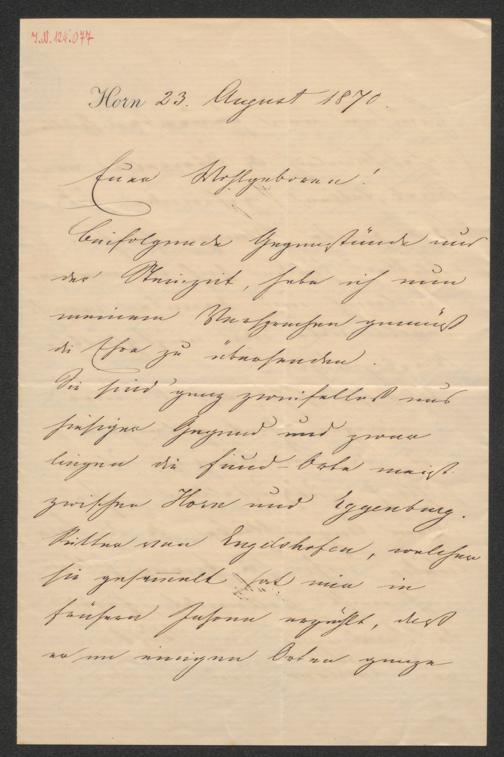 I.N. 124.077
Horn 23. August 1870.
Euer Wohlgeboren!
Beifolgende Gegenstände aus
der Steinzeit, habe ich nun
meinem Versprechen gemäß
die Ehre zu übersenden.
Sie sind ganz zweifellos aus
hiesiger Gegend und zwar
liegen die Fund-Orte meist
zwischen Horn und Eggenburg.
Ritter von Engelshofen, welcher
sie gesammelt hat mir in
frühern Jahren erzählt, daß
er an einigen Orten ganze